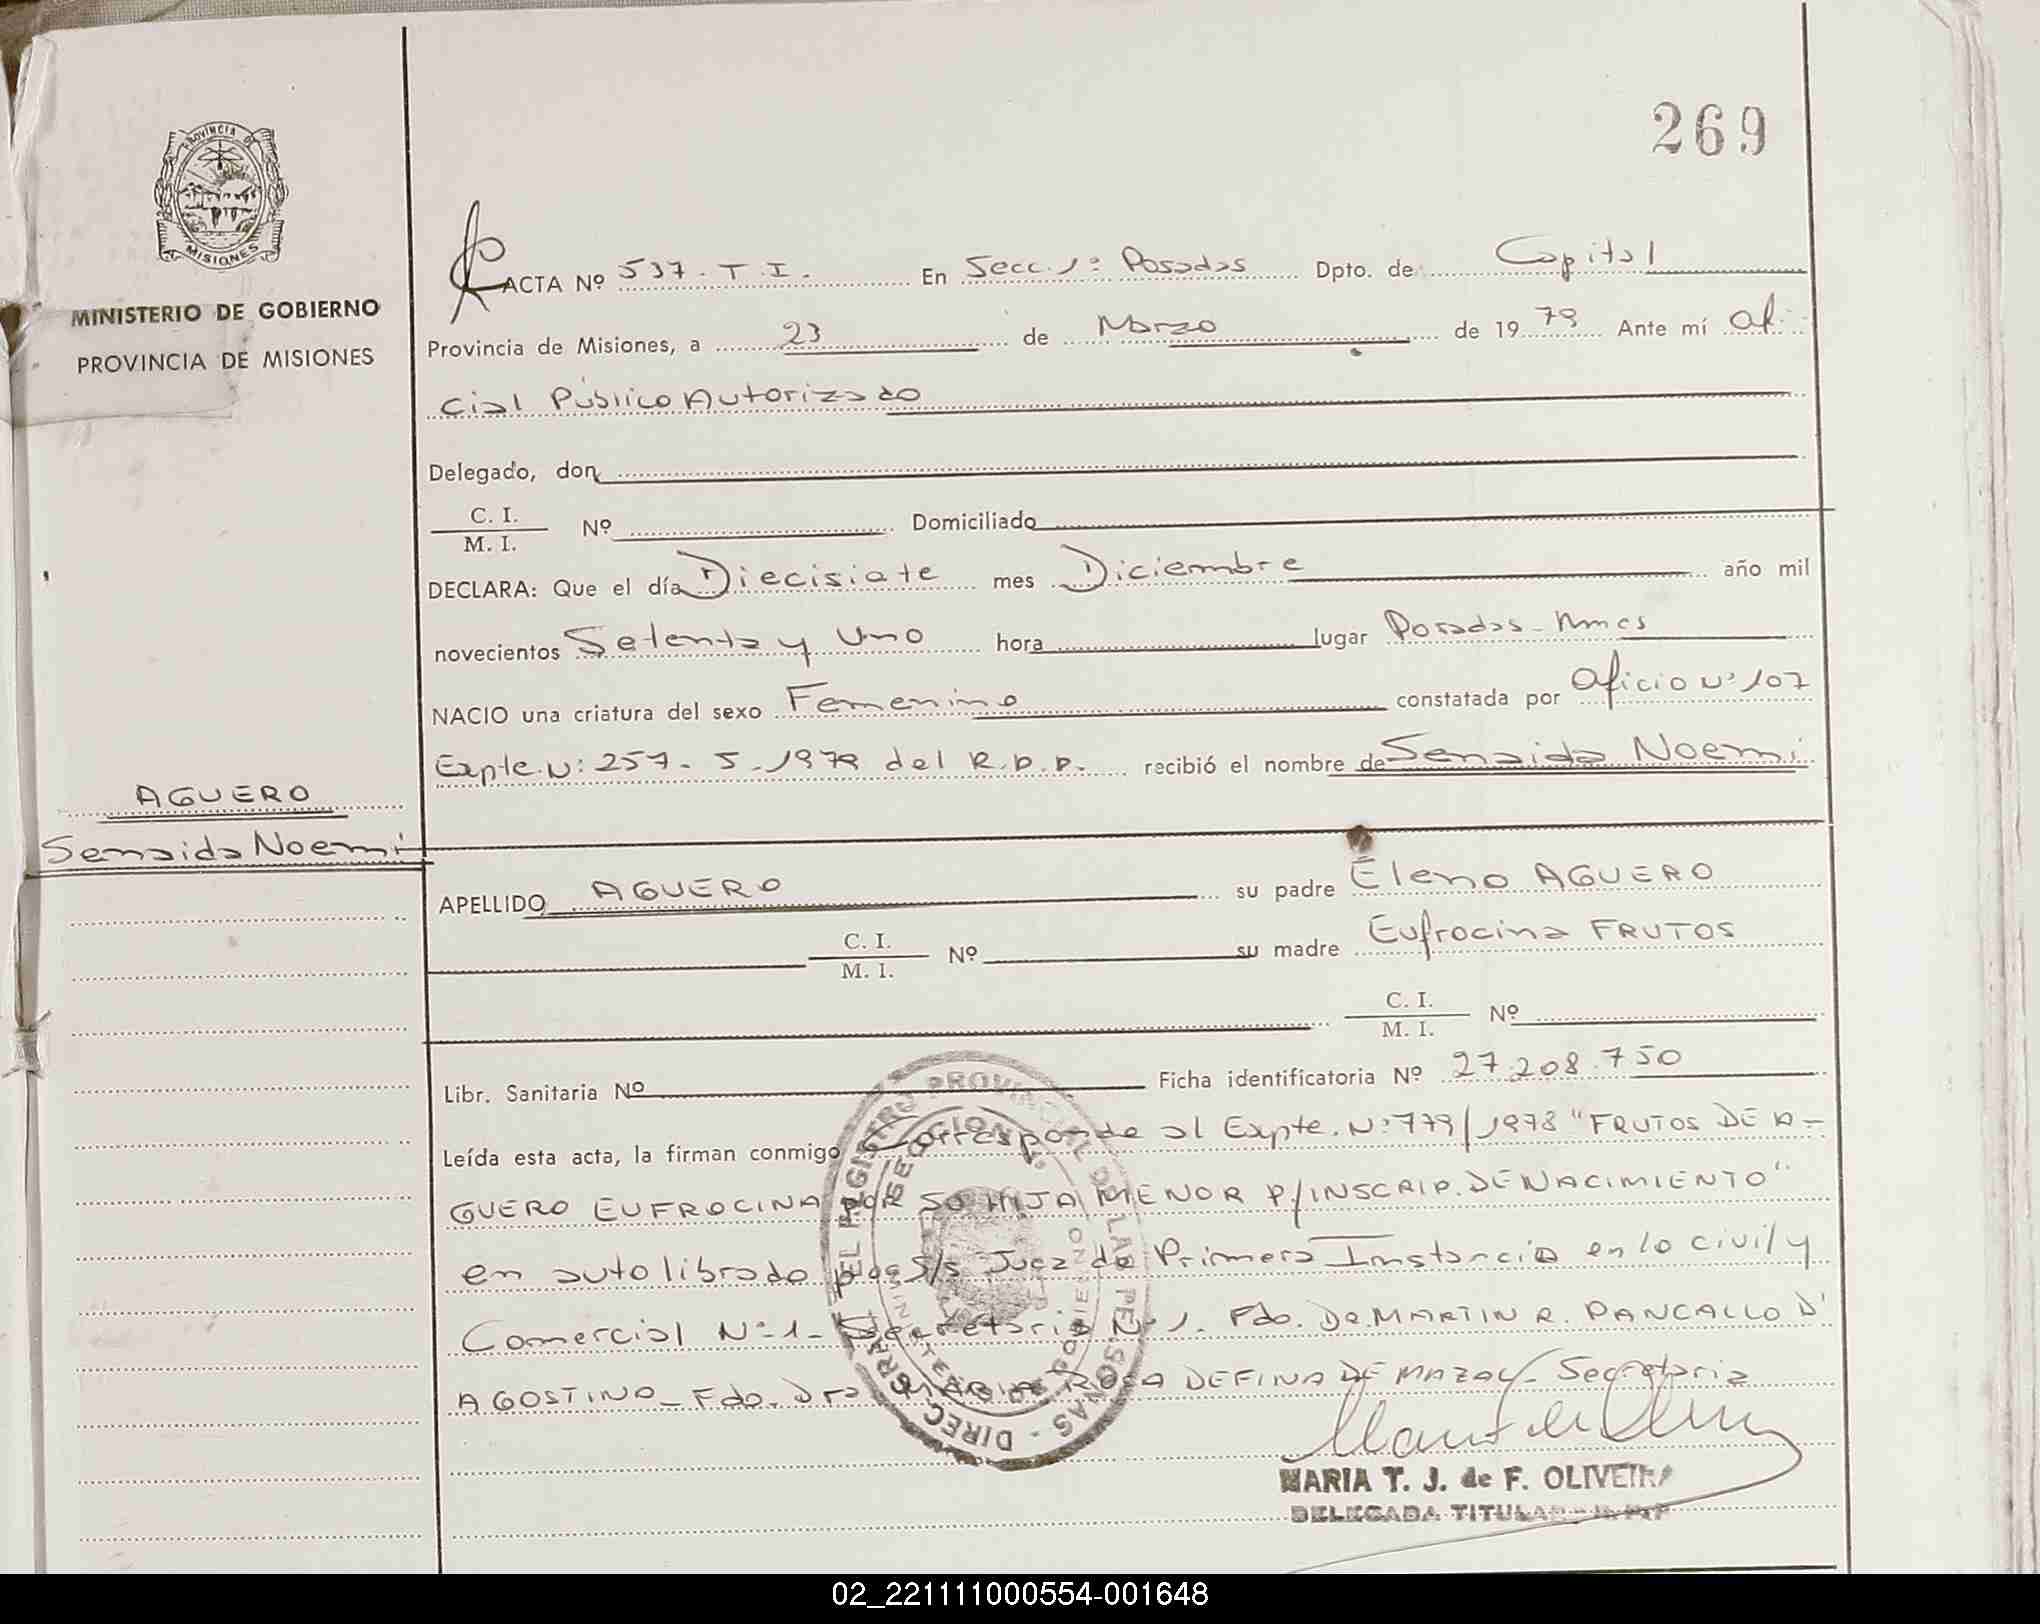 269
PROVINCIA DE
MISIONES
MINISTERIO DE GOBIERNO
PROVINCIA DE MISIONES
ACTA Nº 537. T. I. En Secc. 1ª Posadas Dpto. de Capital
Provincia de Misiones, a 23 de Marzo de 1979 Ante mí Ofi
cial Público Autorizado
Delegado, don
C. I.
M. I.
Nº Domiciliado
DECLARA: Que el día Diecisiete mes Diciembre año mil
novecientos Setenta y Uno hora lugar Posadas-Mnes
NACIO una criatura del sexo Femenino constatada por Oficio Nº 107
Expte. Nº: 257. S. 1979 del R.P.P. recibió el nombre de Senaida Noemi
AGUERO
Senaida Noemi
APELLIDO AGUERO su padre Eleno AGUERO
C. I.
M. I.
Nº su madre Eufrocina FRUTOS
C. I.
M. I.
Nº
Libr. Sanitaria Nº Ficha identificatoria Nº 27.208.750
Leída esta acta, la firman conmigo Corresponde al Expte. Nº 779/1978 "FRUTOS DE A-
GUERO EUFROCINA POR SU HIJA MENOR P/INSCRIP. DE NACIMIENTO"
en auto librado por S/S Juez de Primera Instancia en lo civil y
Comercial Nº 1- Secretaria Nº 1. Fdo. DR. MARTIN R. PANCALLO D'
AGOSTINO - Fdo. Dra MARIA ROSA DEFINA DE MAZAL - Secretaria
MARIA T. J. de F. OLIVEIRA
DELEGADA TITULAR
02_221111000554-001648